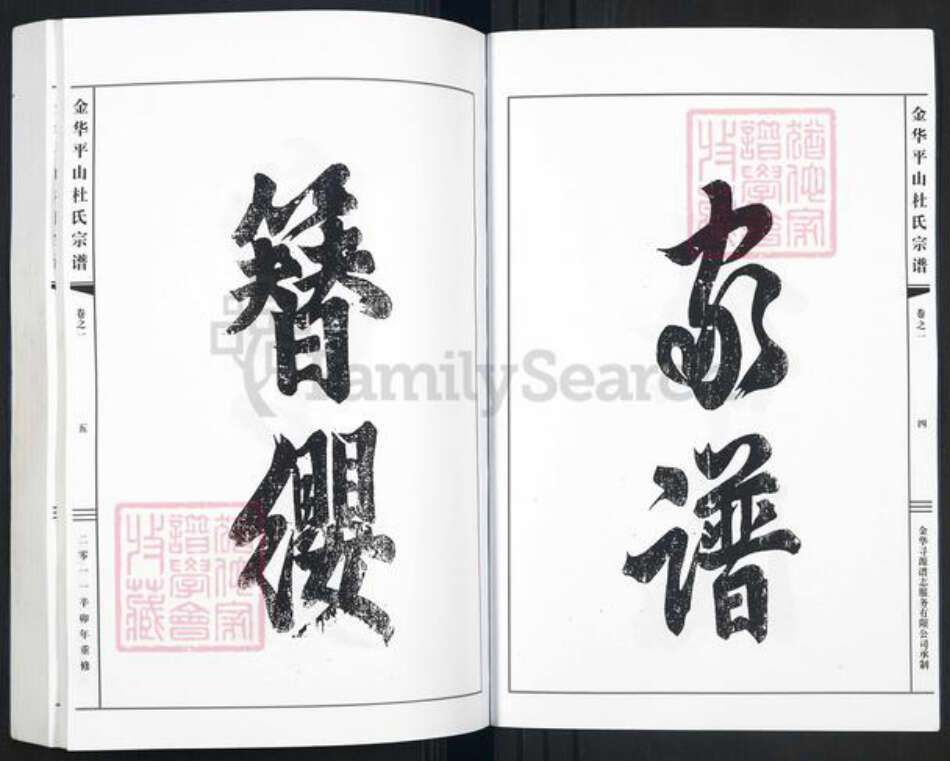 金华平山杜氏宗谱
卷之一
四
金华寻源谱志服务有限公司承制
家谱
簪缨
金华平山杜氏宗谱
卷之一
五
二零一一辛卯年重修
譜學會
收藏
FamilySearch